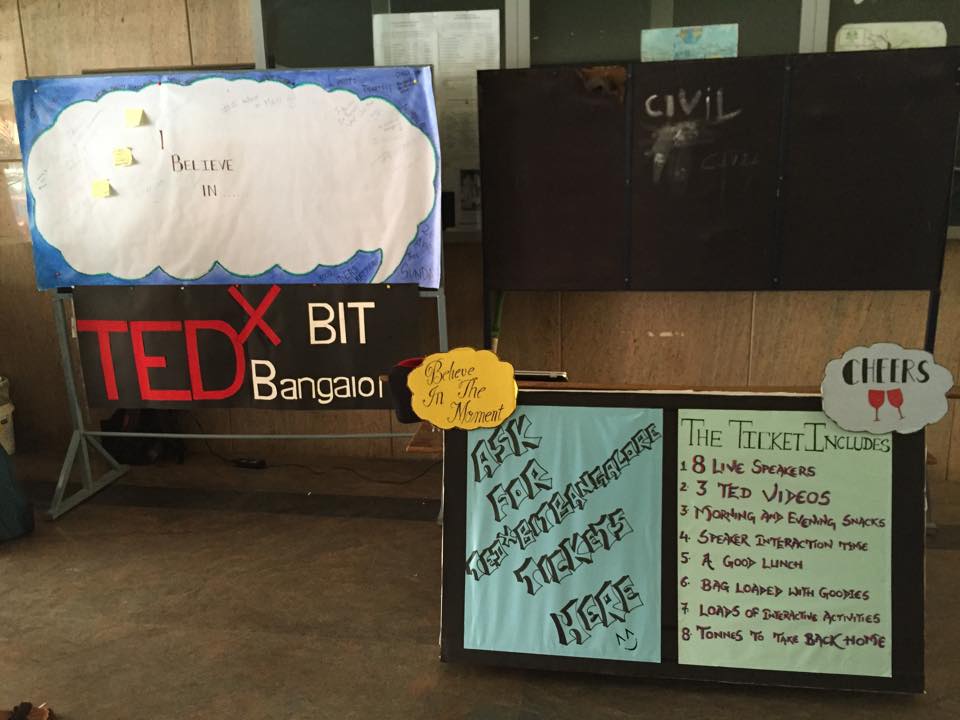 I
BELIEVE
IN ....
TEDX BIT
Bangalor
CIVIL
CIVIL
Believe
In The
Moment
ASK
FOR
TEDXBITBANGALORE
TICKETS
HERE
CHEERS
THE TICKET INCLUDES
1 8 LIVE SPEAKERS
2. 3 TED VIDEOS
3. MORNING AND EVENING SNACKS
4. SPEAKER INTERACTION TIME
5. A GOOD LUNCH
6. BAG LOADED WITH GOODIES
7. LOADS OF INTERACTIVE ACTIVITIES
8. TONNES TO TAKE BACK HOME